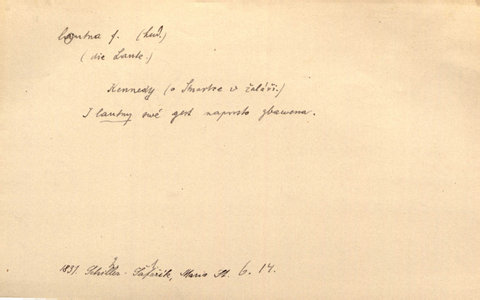 loutna f. (hud.)
(die Laute.)
Kennedy (o Stuartce v žaláři.)
I lautny swé gest naprosto zbawena.
1831. Schiller - Šafařík, Maria St. 6. 14.